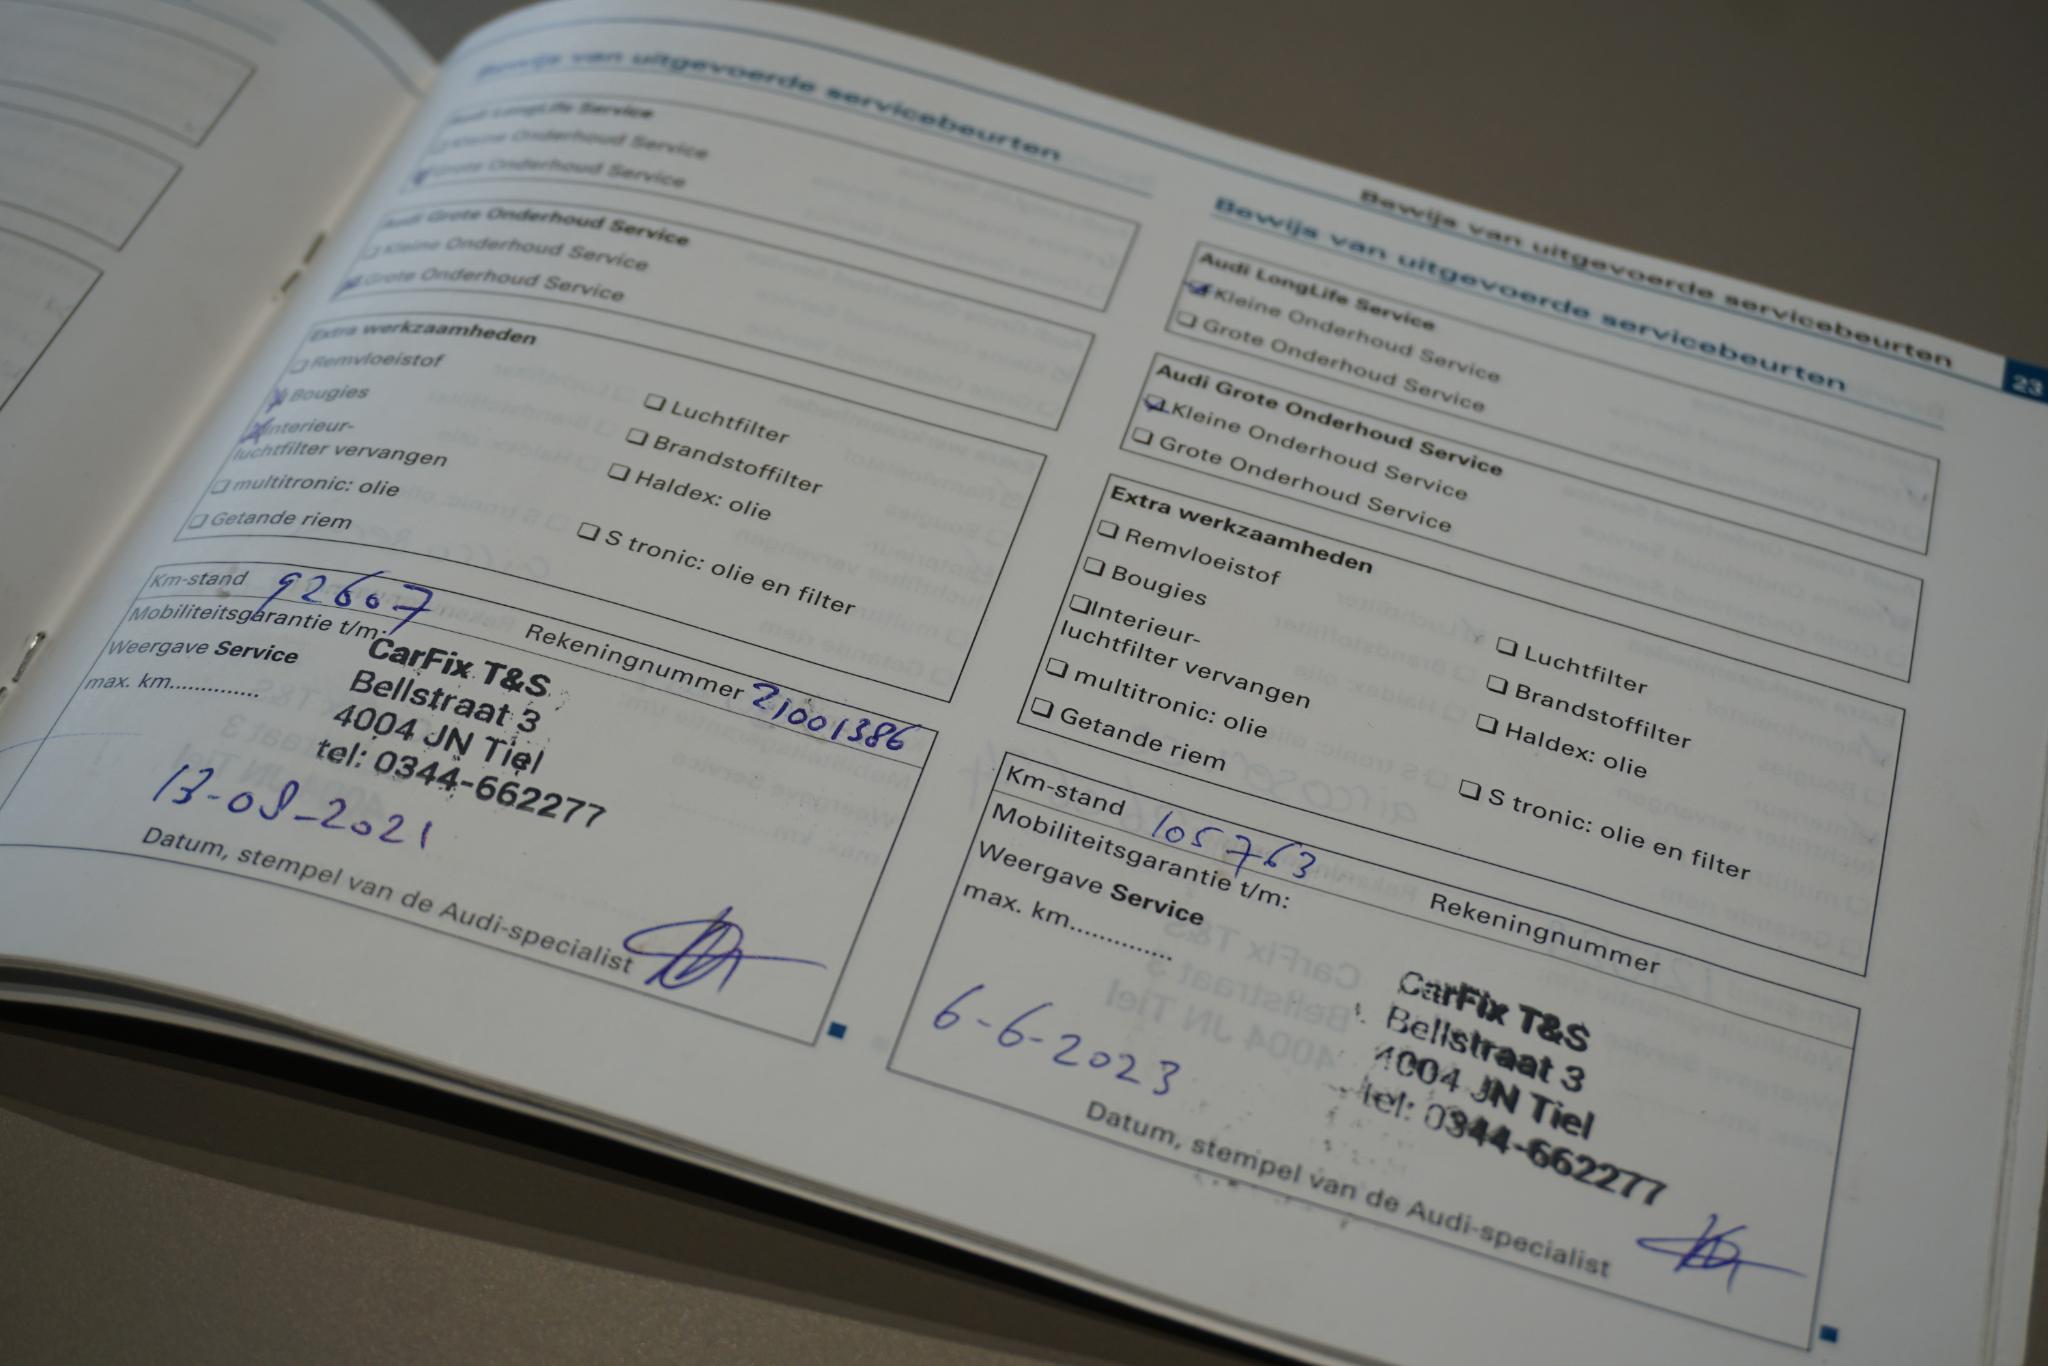 Bewijs van uitgevoerde servicebeurten
Audi LongLife Service
Kleine Onderhoud Service
Grote Onderhoud Service
Audi Grote Onderhoud Service
Kleine Onderhoud Service
Grote Onderhoud Service
Extra werkzaamheden
Remvloeistof
Bougies
Interieur-
luchtfilter vervangen
multitronic: olie
Getande riem
Luchtfilter
Brandstoffilter
Haldex: olie
S tronic: olie en filter
Km-stand 92607
Rekeningnummer 21001386
Mobiliteitsgarantie t/m:
Weergave Service
max. km..............
CarFix T&S
Bellstraat 3
4004 JN Tiel
tel: 0344-662277
13-08-2021
Datum, stempel van de Audi-specialist
Bewijs van uitgevoerde servicebeurten
23
Bewijs van uitgevoerde servicebeurten
Audi LongLife Service
Kleine Onderhoud Service
Grote Onderhoud Service
Audi Grote Onderhoud Service
Kleine Onderhoud Service
Grote Onderhoud Service
Extra werkzaamheden
Remvloeistof
Bougies
Interieur-
luchtfilter vervangen
multitronic: olie
Getande riem
Luchtfilter
Brandstoffilter
Haldex: olie
S tronic: olie en filter
Km-stand 105763
Rekeningnummer
Mobiliteitsgarantie t/m:
Weergave Service
max. km..............
CarFix T&S
Bellstraat 3
4004 JN Tiel
tel: 0344-662277
6-6-2023
Datum, stempel van de Audi-specialist